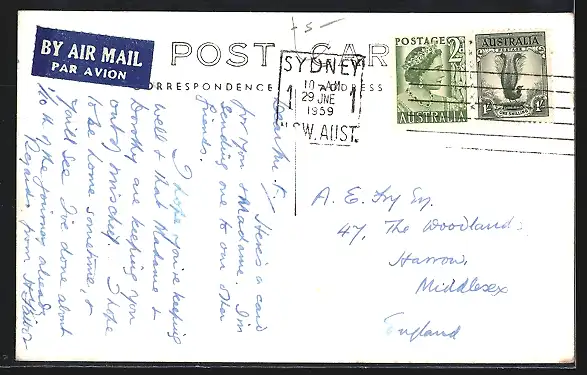 £5-
BY AIR MAIL
PAR AVION
POST CAR
CORRESPONDENCE
ADDRESS
SYDNEY
10-AM
29 JNE
1959
N.S.W. AUST.
1
1
POSTAGE 2D
AUSTRALIA
AUSTRALIA
POSTAGE
1/- ONE SHILLING 1/-
Dear Mr. F.,
Here's a card
for you & Madame. I'm
sending one to our other
friends.
I hope you're keeping
well & that Madame &
Dorothy are keeping you
out of mischief. I hope
to be home sometime, &
you'll see I've done about
of the journey already
Regards from
A. E. Fry Esq.
47, The Woodlands,
Harrow,
Middlesex
England